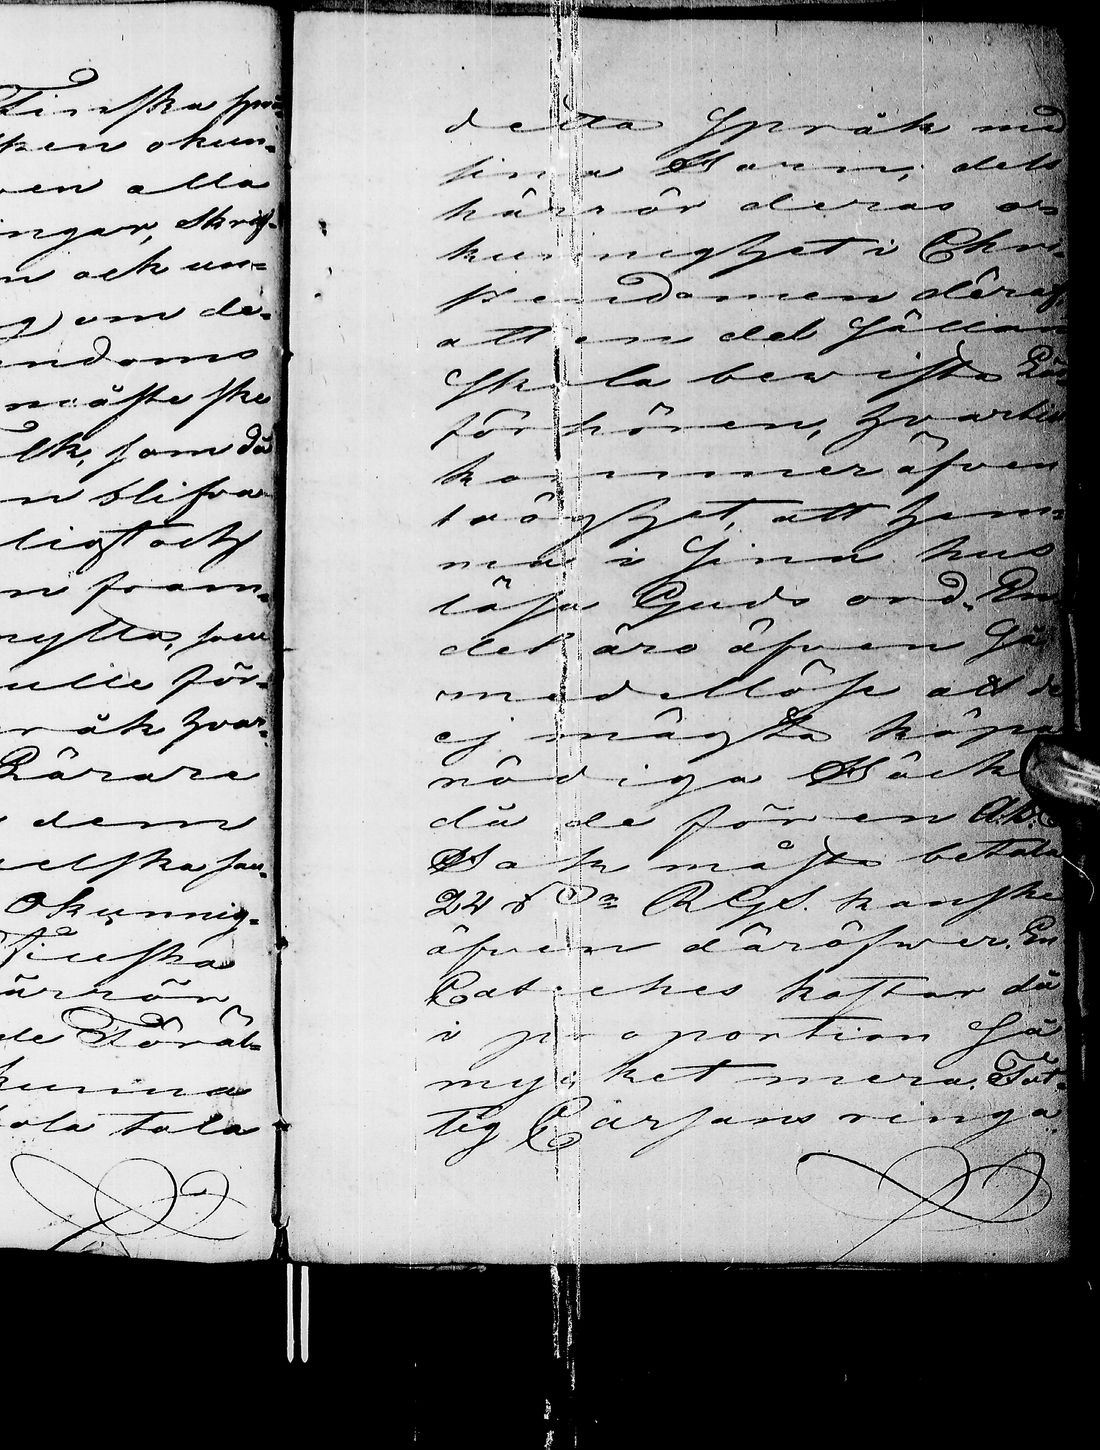 Finska språ-
ken okun-
en alla
ingar, Skrif-
n och un-
g om de-
endoms
måste ske
olk, som då
n blifva
ligt och
n fram-
nytta, som
ulle för-
råk hvar-
Lärare
dem
elska sam-
Okunnig-
Finska
ärrör
de Föräl-
kunna
ola tala
detta Språk med
sina Barn; dels
härrör deras o-
kunnighet i Chri-
stendomen däraf
att en del sällan
skola bevista Läs
förhören, hvartil
kommer äfven
tröghet, att hem-
ma i sina hus
läsa Guds ord. En
del äro äfven så
medellöse att de
ej mägta köpa
nödiga Böck
då de för en Ab.C
Bok måste betala
24 RGS. kanske
äfven däröfwer. En
Cateches kostar då
i proportion så
mycket mera. Fat-
tig Carsans ringa